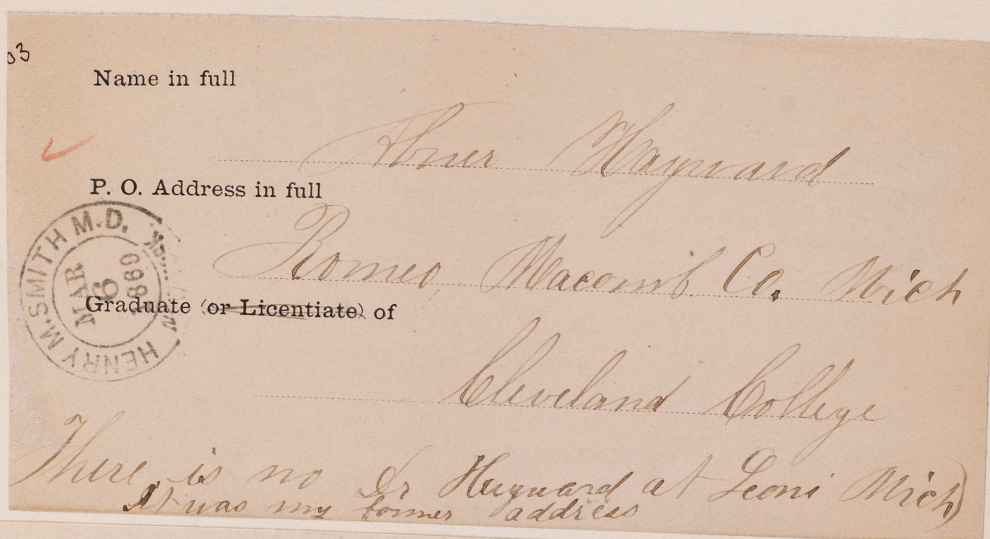 03
Name in full
Abner Hayward
P. O. Address in full
Romeo, Macomb Co. Mich
HENRY M. SMITH M.D.
MAR
6
Graduate (or Licentiate) of
Cleveland College
There is no Dr Hayward at Leoni Mich)
It was my former address